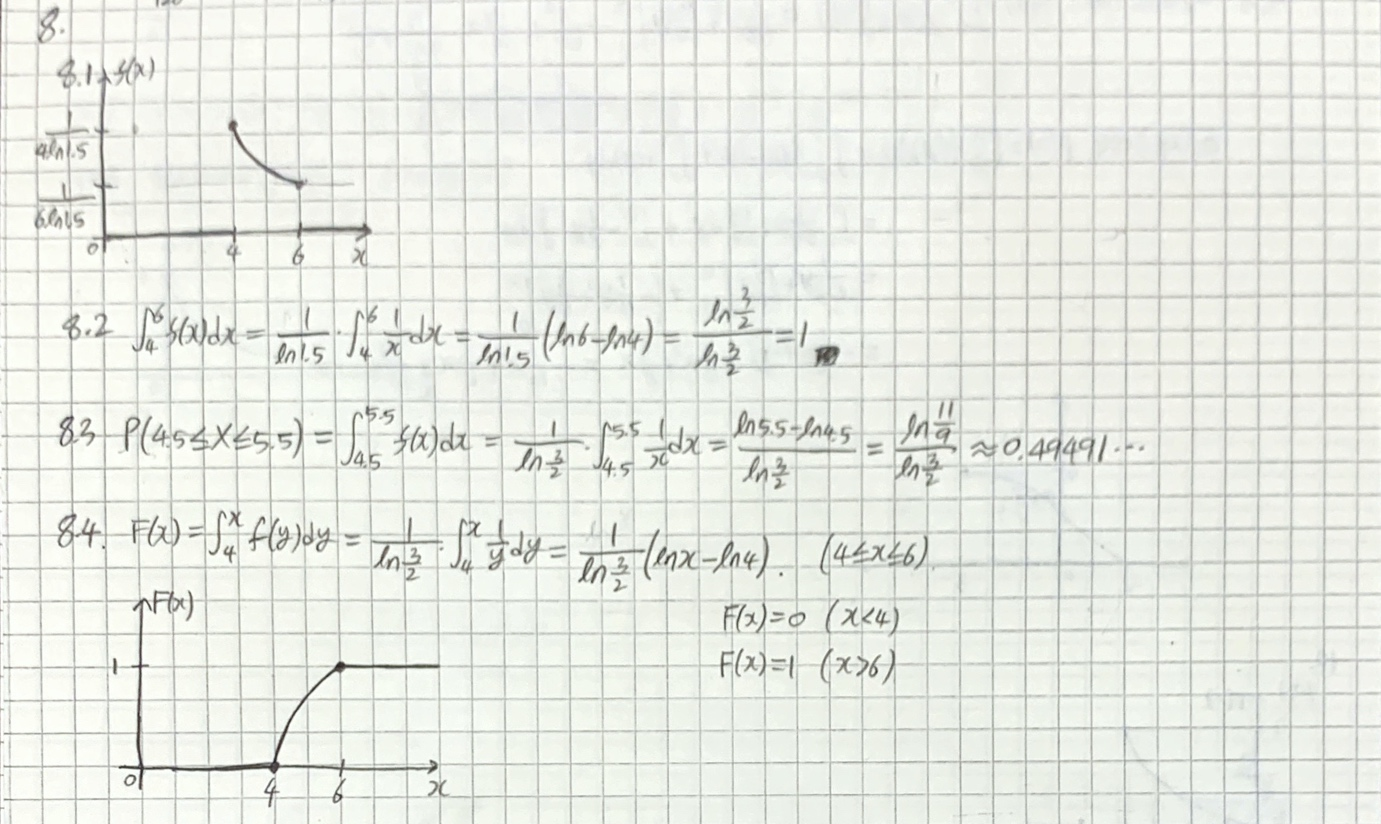 8.
8.1 f(x)
1/(4ln1.5)
1/(6ln1.5)
0 4 6 x
8.2 ∫₄⁶ f(x)dx = 1/(ln1.5) · ∫₄⁶ 1/x dx = 1/(ln1.5) (ln6-ln4) = (ln 3/2)/(ln 3/2) = 1
8.3 P(4.5≤X≤5.5) = ∫_{4.5}^{5.5} f(x)dx = 1/(ln 3/2) · ∫_{4.5}^{5.5} 1/x dx = (ln5.5-ln4.5)/(ln 3/2) = (ln 11/9)/(ln 3/2) ≈ 0.49491...
8.4. F(x) = ∫₄ˣ f(y)dy = 1/(ln 3/2) · ∫₄ˣ 1/y dy = 1/(ln 3/2) (lnx-ln4). (4≤x≤6).
F(x)=0 (x<4)
F(x)=1 (x>6)
F(x)
1
0 4 6 x